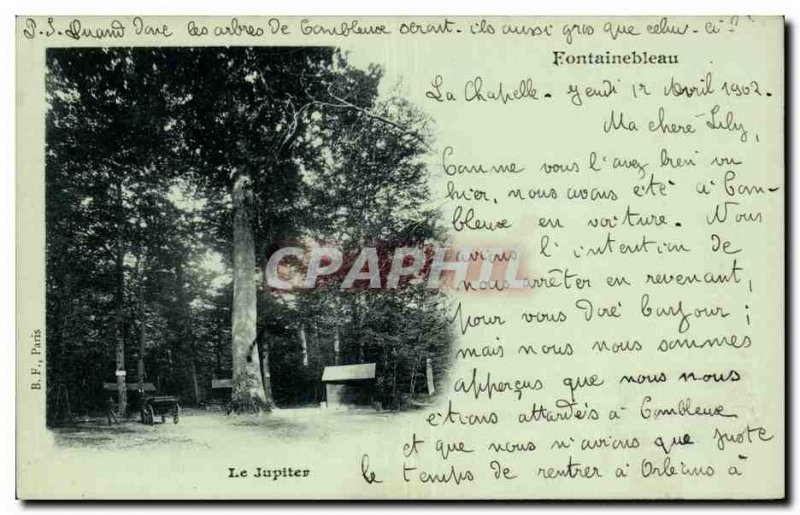 P.S. Quand donc les arbres de Combleux seront-ils aussi gros que celui-ci?
Fontainebleau
La Chapelle - Jeudi 17 Avril 1902.
Ma chère Lily,
Comme vous l'avez bien vu
hier, nous avons été à Com-
bleux en voiture. Nous
avions l'intention de
nous arrêter en revenant,
pour vous dire bonjour;
mais nous nous sommes
aperçus que nous nous
étions attardés à Combleux
et que nous n'avions que juste
le temps de rentrer à Orléans à
CPARPHIL.com
B. F., Paris
Le Jupiter